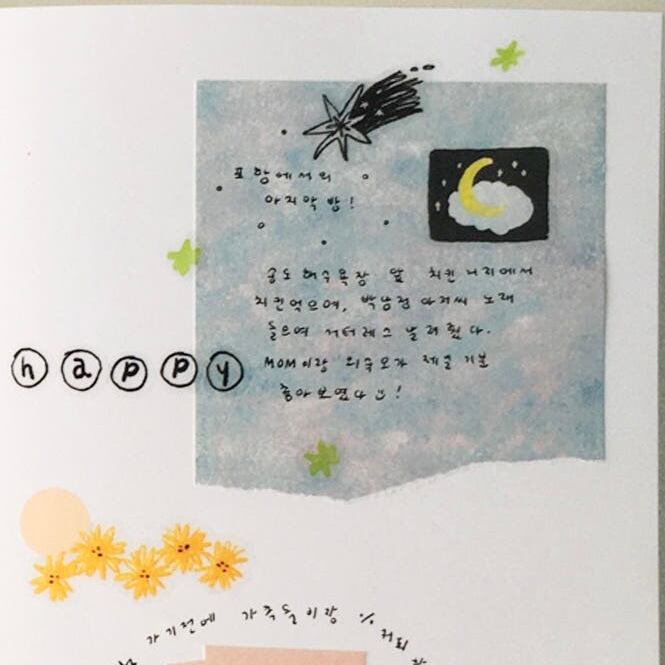 포항에서의
마지막 밤!
송도해수욕장 앞 치킨 거리에서
치킨먹으며, 박남정 아저씨 노래
들으며 스터레스 날려줬다.
MOM이랑 외숙모가 제일 기분
좋아보였다!
happy
가기전에 가족들이랑